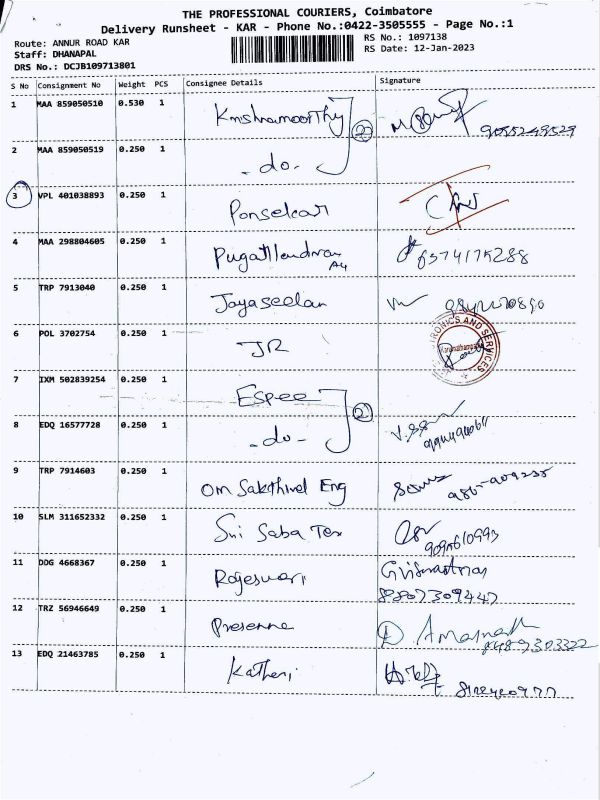 THE PROFESSIONAL COURIERS, Coimbatore
Delivery Runsheet - KAR - Phone No.:0422-3505555 - Page No.:1
Route: ANNUR ROAD KAR
RS No.: 1097138
Staff: DHANAPAL
RS Date: 12-Jan-2023
DRS No.: DCJB109713801
S No Consignment No Weight PCS Consignee Details Signature
1 MAA 859050510 0.530 1 2
2 MAA 859050519 0.250 1 - do -
3 VPL 401038893 0.250 1 Ponsekar
4 MAA 298804605 0.250 1
5 TRP 7913040 0.250 1 Jayaseelan
6 POL 3702754 0.250 1 JR
7 IXM 502839254 0.250 1 Espee 2
8 EDQ 16577728 0.250 1 - do -
9 TRP 7914603 0.250 1 Om Sakthivel Eng
10 SLM 311652332 0.250 1 Sri Saba Tex
11 DDG 4668367 0.250 1 Rajeswari
8807309447
12 TRZ 56946649 0.250 1 Presenna Amarnath
8489303322
13 EDQ 21463785 0.250 1